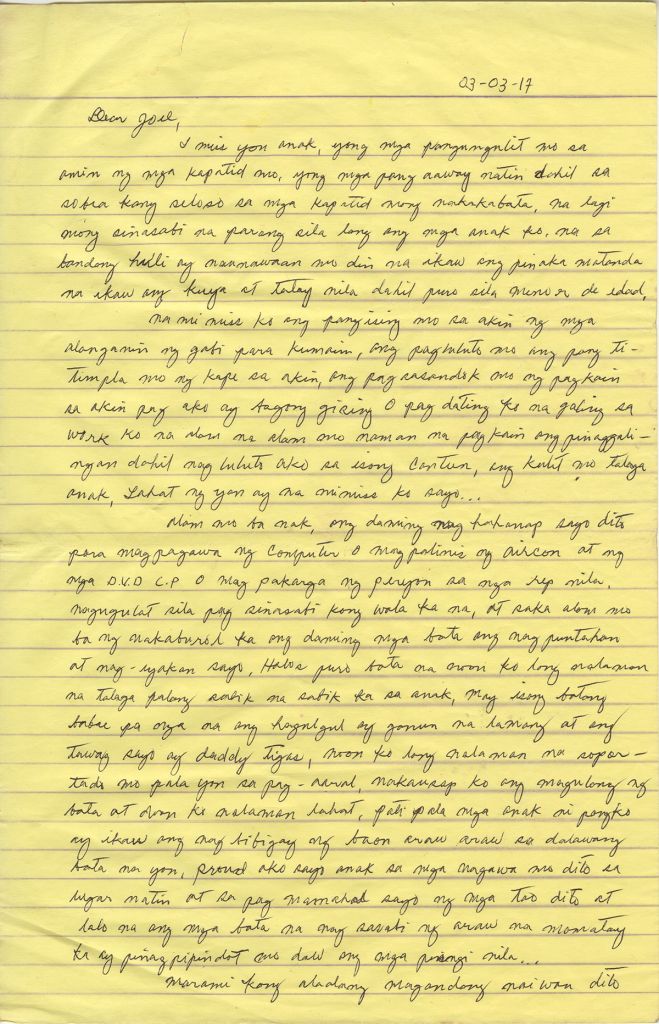 03-03-17
Dear Joel,
I miss you anak, yong mga pangungulit mo sa
amin ng mga kapatid mo, yong mga pang aaway natin dahil sa
sobra kang seloso sa mga kapatid mong nakakabata, na lagi
mong sinasabi na parang sila lang ang mga anak ko, na sa
bandang huli ay naunawaan mo din na ikaw ang pinaka matanda
na ikaw ang kuya at tatay nila dahil puro sila menor de edad,
na mimiss ko ang pangising mo sa akin ng mga
alanganin ng gabi para kumain, ang pagluluto mo ang pang ti-
timpla mo ng kape sa akin, ang pag sasandok mo ng pagkain
sa akin pag ako ay bagong gising O pag dating ko na galing sa
work ko na alam na alam mo naman na pagkain ang pinaggali-
ngan dahil nag luluto ako sa isang Canteen, ang kulit mo talaga
anak, Lahat ng yan ay na mimiss ko sayo...
alam mo ba nak, ang daming nag hahanap sayo dito
para magpagawa ng Computer O magpalinis ng aircon at ng
mga D.V.D C.P O mag pakarga ng preyon sa mga rep nila,
nagugulat sila pag sinasabi kong wala ka na, at saka alam mo
ba ng nakaburol ka ang daming mga bata ang nag puntahan
at nag-iyakan sayo, Halos puro bata na noon ko lang nalaman
na talaga palang sabik na sabik ka sa anak, May isang batang
babae pa nga na ang hagulgul ay ganun na lamang at ang
tawag sayo ay daddy tigas, noon ko lang nalaman na sopor-
tado mo pala yon sa pag-aaral, nakausap ko ang magulang ng
bata at doon ko nalaman lahat, pati pala mga anak ni pangko
ay ikaw ang nag bibigay ng baon araw araw sa dalawang
bata na yon, proud ako sayo anak sa mga nagawa mo dito sa
lugar natin at sa pag mamahal sayo ng mga tao dito at
lalo na ang mga bata na nag sasabi ng araw na mamatay
ka ay pinag pipindot mo daw ang mga pisngi nila...
marami kang alaalang magandang naiwan dito